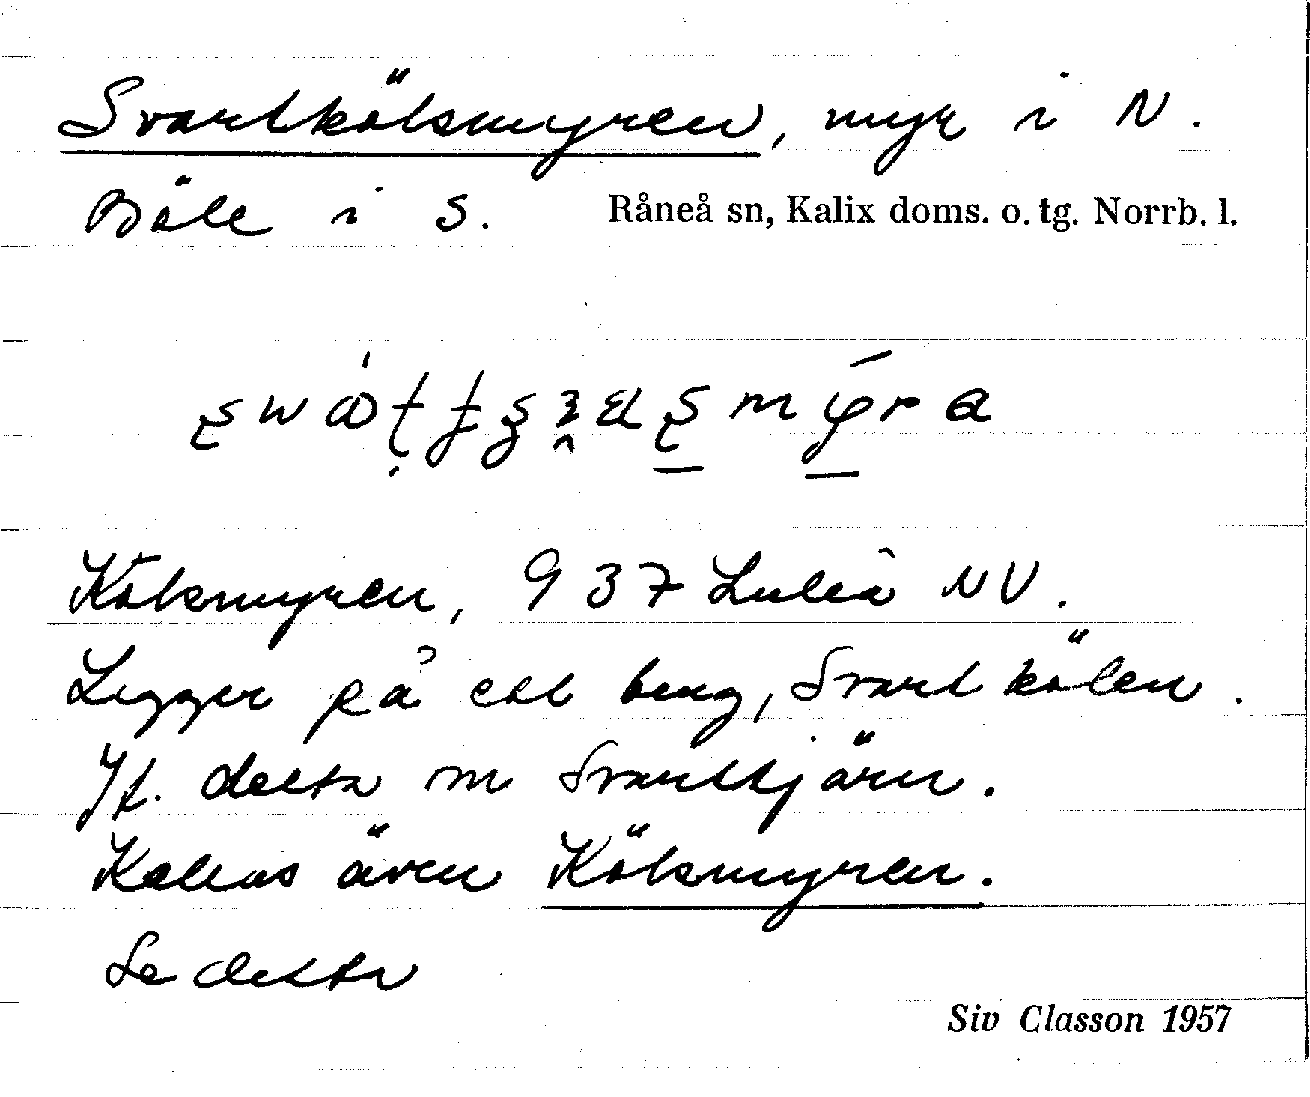 Svartkölsmyren, myr i N.
Böle i S. Råneå sn, Kalix doms. o. tg. Norrb. l.
Kölsmyren, 9 37 Luleå NV.
Ligger på ett berg, Svartkölen.
Jf. detta m Svarttjärn.
Kallas även Kölsmyren.
Se detta
Siv Classon 1957